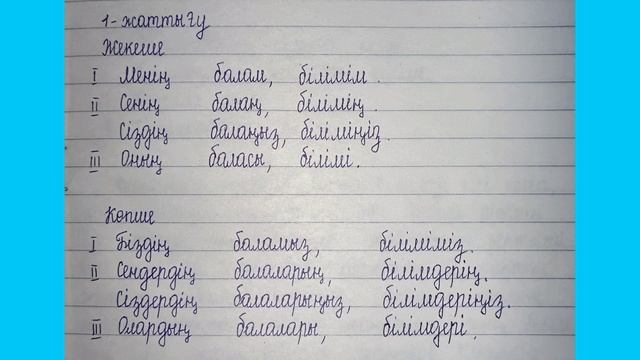 1-жаттығу
Жекеше
I Менің балам, білімім.
II Сенің балаң, білімің.
Сіздің балаңыз, біліміңіз.
III Оның баласы, білімі.
Көпше
I Біздің баламыз, біліміміз.
II Сендердің балаларың, білімдерің.
Сіздердің балаларыңыз, білімдеріңіз.
III Олардың балалары, білімдері.